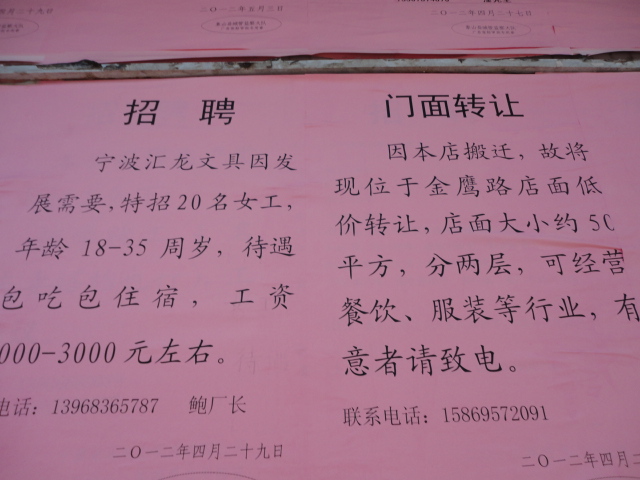 月二十九日
二〇一二年五月三日
二〇一二年四月二十七日
招 聘
宁波汇龙文具因发
展需要,特招20名女工,
年龄 18-35 周岁,待遇
包吃包住宿,工资
000-3000元左右。
电话: 13968365787 鲍厂长
二〇一二年四月二十九日
门面转让
因本店搬迁,故将
现位于金鹰路店面低
价转让,店面大小约50
平方,分两层,可经营
餐饮、服装等行业,有
意者请致电。
联系电话: 15869572091
二〇一二年四月二